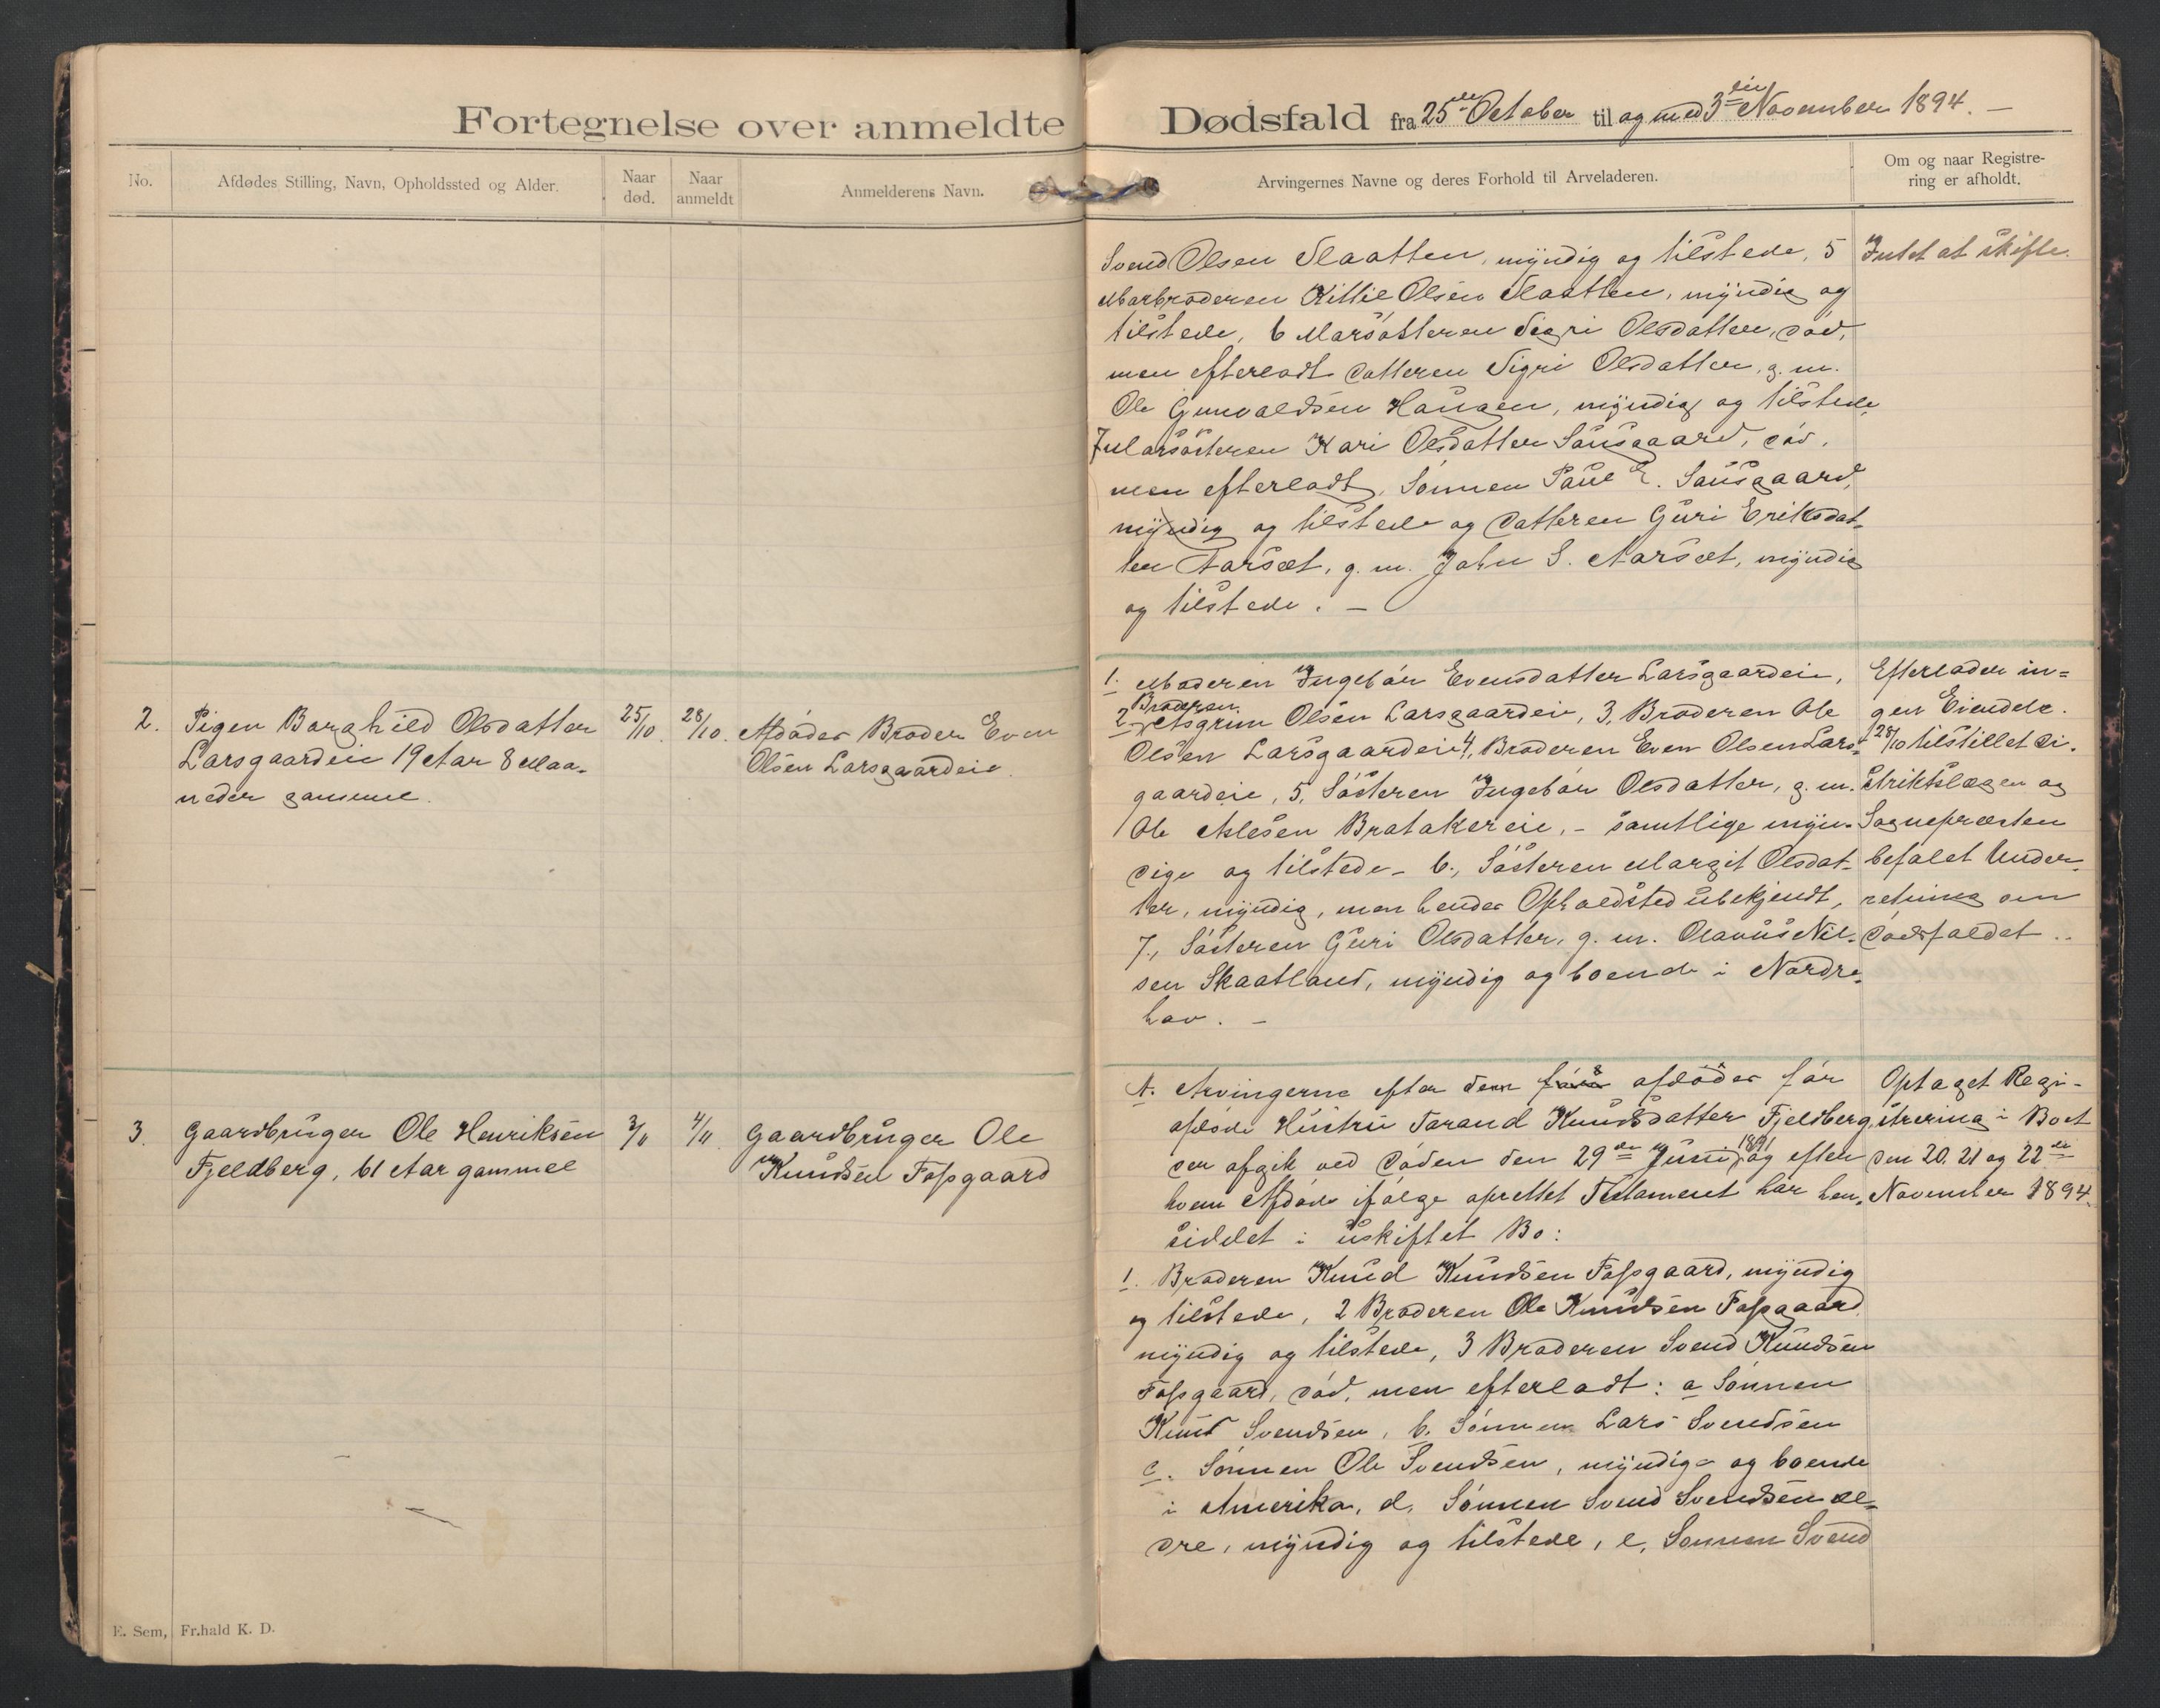 Fortegnelse over anmeldte Dødsfald fra 25de October til og med 3die November 1894. –
No.
Afdødes Stilling, Navn, Opholdssted og Alder.
Naar død.
Naar anmeldt
Anmelderens Navn.
Arvingernes Navne og deres Forhold til Arveladeren.
Om og naar Registre-
ring er afholdt.
Svend Olsen Slaatten, myndig og tilstede, 5
Morbroderen Kittil Olsen Slaatten, myndig og
tilstede, 6 Morsösteren Sigri Olsdatter, död,
men efterladt Datteren Sigri Olsdatter, g. m.
Ole Gunvaldsen Haugen, myndig og tilstede
7 Morsösteren Kari Olsdatter Sausgaard, död,
men efterladt, Sönnen Paul E. Sausgaard,
myndig og tilstede og Datteren Guri Eriksdat-
ter Aarsæt, g. m. John S. Aarsæt, myndig
og tilstede. –
Intet at skifte.
2.
Pigen Borghild Olsdatter
Larsgaardeie 19 Aar 8 Maa-
neder gammel.
25/10
28/10.
Afdödes Broder Even
Olsen Larsgaardeie.
1. Moderen Ingebör Evensdatter Larsgaardeie,
Broderen
2 Asgrim Olsen Larsgaardeie, 3, Broderen Ole
Olsen Larsgaardeie 4, Broderen Even Olsen Lars-
gaardeie, 5, Sösteren Ingebör Olsdatter, g. m.
Ole Aslesen Bratakereie, – samtlige myn-
dige og tilstede – 6, Sösteren Margit Olsdat-
ter, myndig, men hendes Opholdsted ubekjendt,
7, Sösteren Guri Olsdatter, g. m. Olaus Nil-
sen Skaatland, myndig og boende i Nordre-
hov. –
Efterlader in-
gen Eiendele.
28/10 tilstillet Di-
striktslægen og
Sognepræsten
befalet Under-
retning om
Dödsfaldet.
3.
Gaardbruger Ole Henriksen
Fjeldberg, 61 Aar gammel
3/11
4/11
Gaardbruger Ole
Knudsen Fossgaard
A. Arvingerne efter den afdödes för
afdöde Hustru Torand Knudsdatter Fjeldberg
der afgik ved Döden den 29de Juni 1891 og efter
hvem Afdöde ifölge oprettet Testament har hen-
siddet i uskiftet Bo:
1. Broderen Knud Knudsen Fossgaard, myndig
og tilstede, 2 Broderen Ole Knudsen Fossgaard,
myndig og tilstede, 3 Broderen Svend Knudsen
Fossgaard, död, men efterladt: a Sönnen
Knud Svendsen, b. Sönnen Lars Svendsen
c. Sönnen Ole Svendsen, myndige og boende
i Amerika, d, Sönnen Svend Svendsen æl-
dre, myndig og tilstede, e, Sönnen Svend
Optaget Regi-
strering i Boet
den 20. 21 og 22de
November 1894.
E. Sem, Fr.hald K. D.